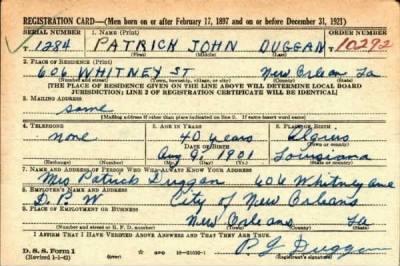 REGISTRATION CARD—(Men born on or after February 17, 1897 and on or before December 31, 1921)
SERIAL NUMBER 1. NAME (Print) ORDER NUMBER
1284 PATRICK JOHN DUGGAN 10292
(First) (Middle) (Last)
2. PLACE OF RESIDENCE (Print)
606 WHITNEY ST New Orlean La
(Number and street) (Town, township, village, or city) (County) (State)
[THE PLACE OF RESIDENCE GIVEN ON THE LINE ABOVE WILL DETERMINE LOCAL BOARD
JURISDICTION; LINE 2 OF REGISTRATION CERTIFICATE WILL BE IDENTICAL]
3. MAILING ADDRESS
same
[Mailing address if other than place indicated on line 2. If same insert word same]
4. TELEPHONE 5. AGE IN YEARS 6. PLACE OF BIRTH
none 40 years Algiers
DATE OF BIRTH (Town or county)
Aug 9 1901 Louisiana
(Exchange) (Number) (Mo.) (Day) (Yr.) (State or country)
7. NAME AND ADDRESS OF PERSON WHO WILL ALWAYS KNOW YOUR ADDRESS
Mrs Patrick Duggan 606 Whitney ave
8. EMPLOYER'S NAME AND ADDRESS
D. P. W City of New Orleans
9. PLACE OF EMPLOYMENT OR BUSINESS
New Orleans La
(Number and street or R. F. D. number) (Town) (County) (State)
I AFFIRM THAT I HAVE VERIFIED ABOVE ANSWERS AND THAT THEY ARE TRUE.
D. S. S. Form 1
(Revised 1-1-42) (over) GPO P. J Duggan